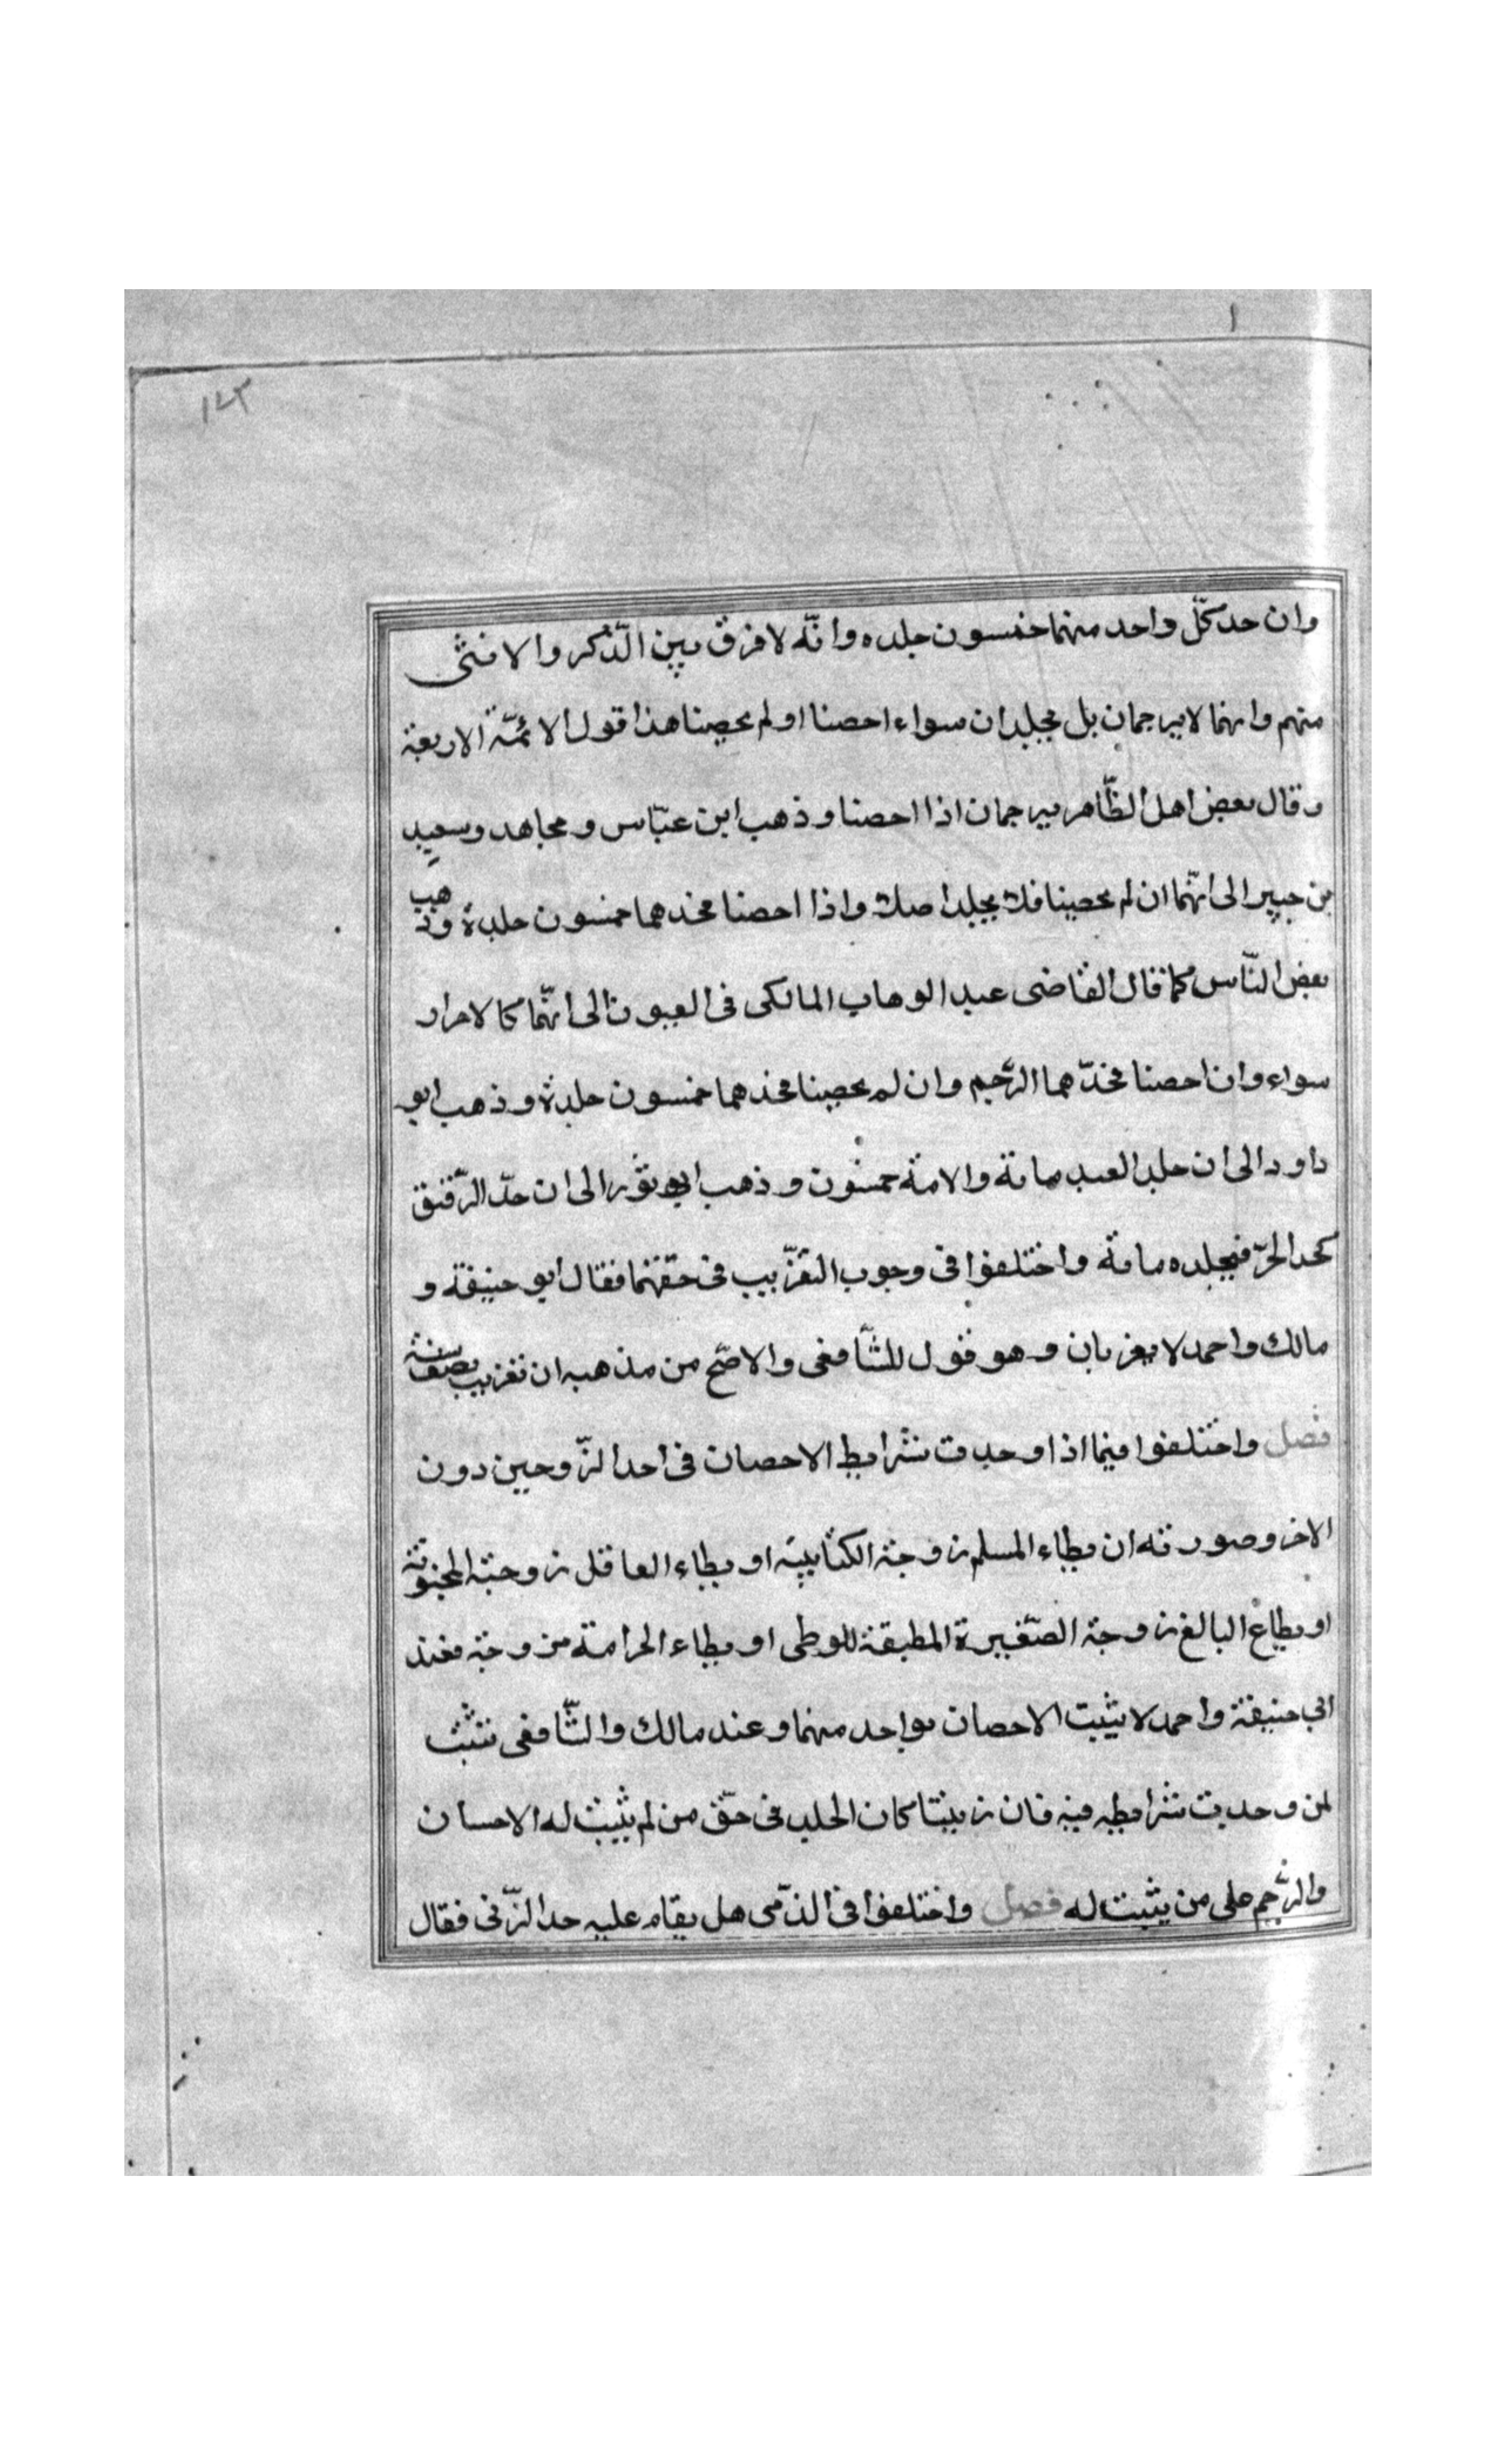 ١٤٣
وان حد كلّ واحد منهما خمسون جلده وانّه لا فرق بين الذّكر والانثى
منهم وانهما لا يرجمان بل يجلدان سواء احصنا او لم يحصنا هذا قول الائمّة الاربعة
وقال بعض اهل الظّاهر يرجمان اذا احصنا وذهب ابن عبّاس ومجاهد وسعيد
بن جبير الى انّهما ان لم يحصنا فلا يجلدا اصلا واذا احصنا فحدهما خمسون جلدة وذهب
بعض النّاس كما قال القاضى عبد الوهاب المالكى فى العيون الى انّهما كالاحرار
سواء وان احصنا فحدّهما الرّجم وان لم يحصنا فحدهما خمسون جلدة وذهب ابو
داود الى ان جلد العبد مائة والامة خمسون وذهب ابو ثور الى ان حدّ الرّقيق
كحد الحرّ فيجلده مائة واختلفوا فى وجوب التغريب فى حقهما فقال ابو حنيفة و
مالك واحمد لا يغربان وهو قول للشّافعى والاصّح من مذهبه ان تغريب نصف سنة
فصل واختلفوا فيما اذا وجدت شرايط الاحصان فى احد الزّوجين دون
الاخر وصورته ان يطاء المسلم زوجته الكتابيّة او يطاء العاقل زوجته المجنونة
او يطاء البالغ زوجته الصّغيرة المطيقة للوطى او يطاء الحر امة من وجته فعند
ابي حنيفة واحمد لا يثبت الاحصان بواحد منهما وعند مالك والشّافعى تثبت
لمن وجدت شرايطه فيه فان زنيتا كان الجلد فى حقّ من لم يثبت له الاحسان
والرّجم على من يثبت له فصل واختلفوا فى الذّمى هل يقام عليه حد الزّنى فقال